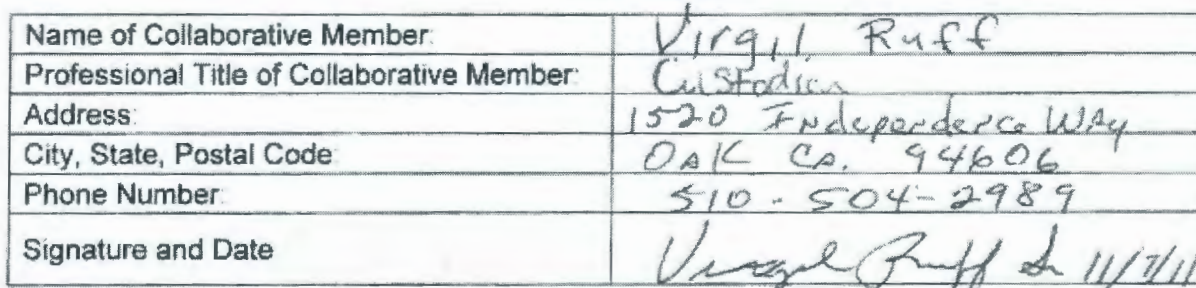 Name of Collaborative Member: Virgil Ruff
Professional Title of Collaborative Member: Custodian
Address: 1520 Independence Way
City, State, Postal Code: Oak Ca. 94606
Phone Number: 510-504-2989
Signature and Date Virgil Ruff Sr 11/7/11